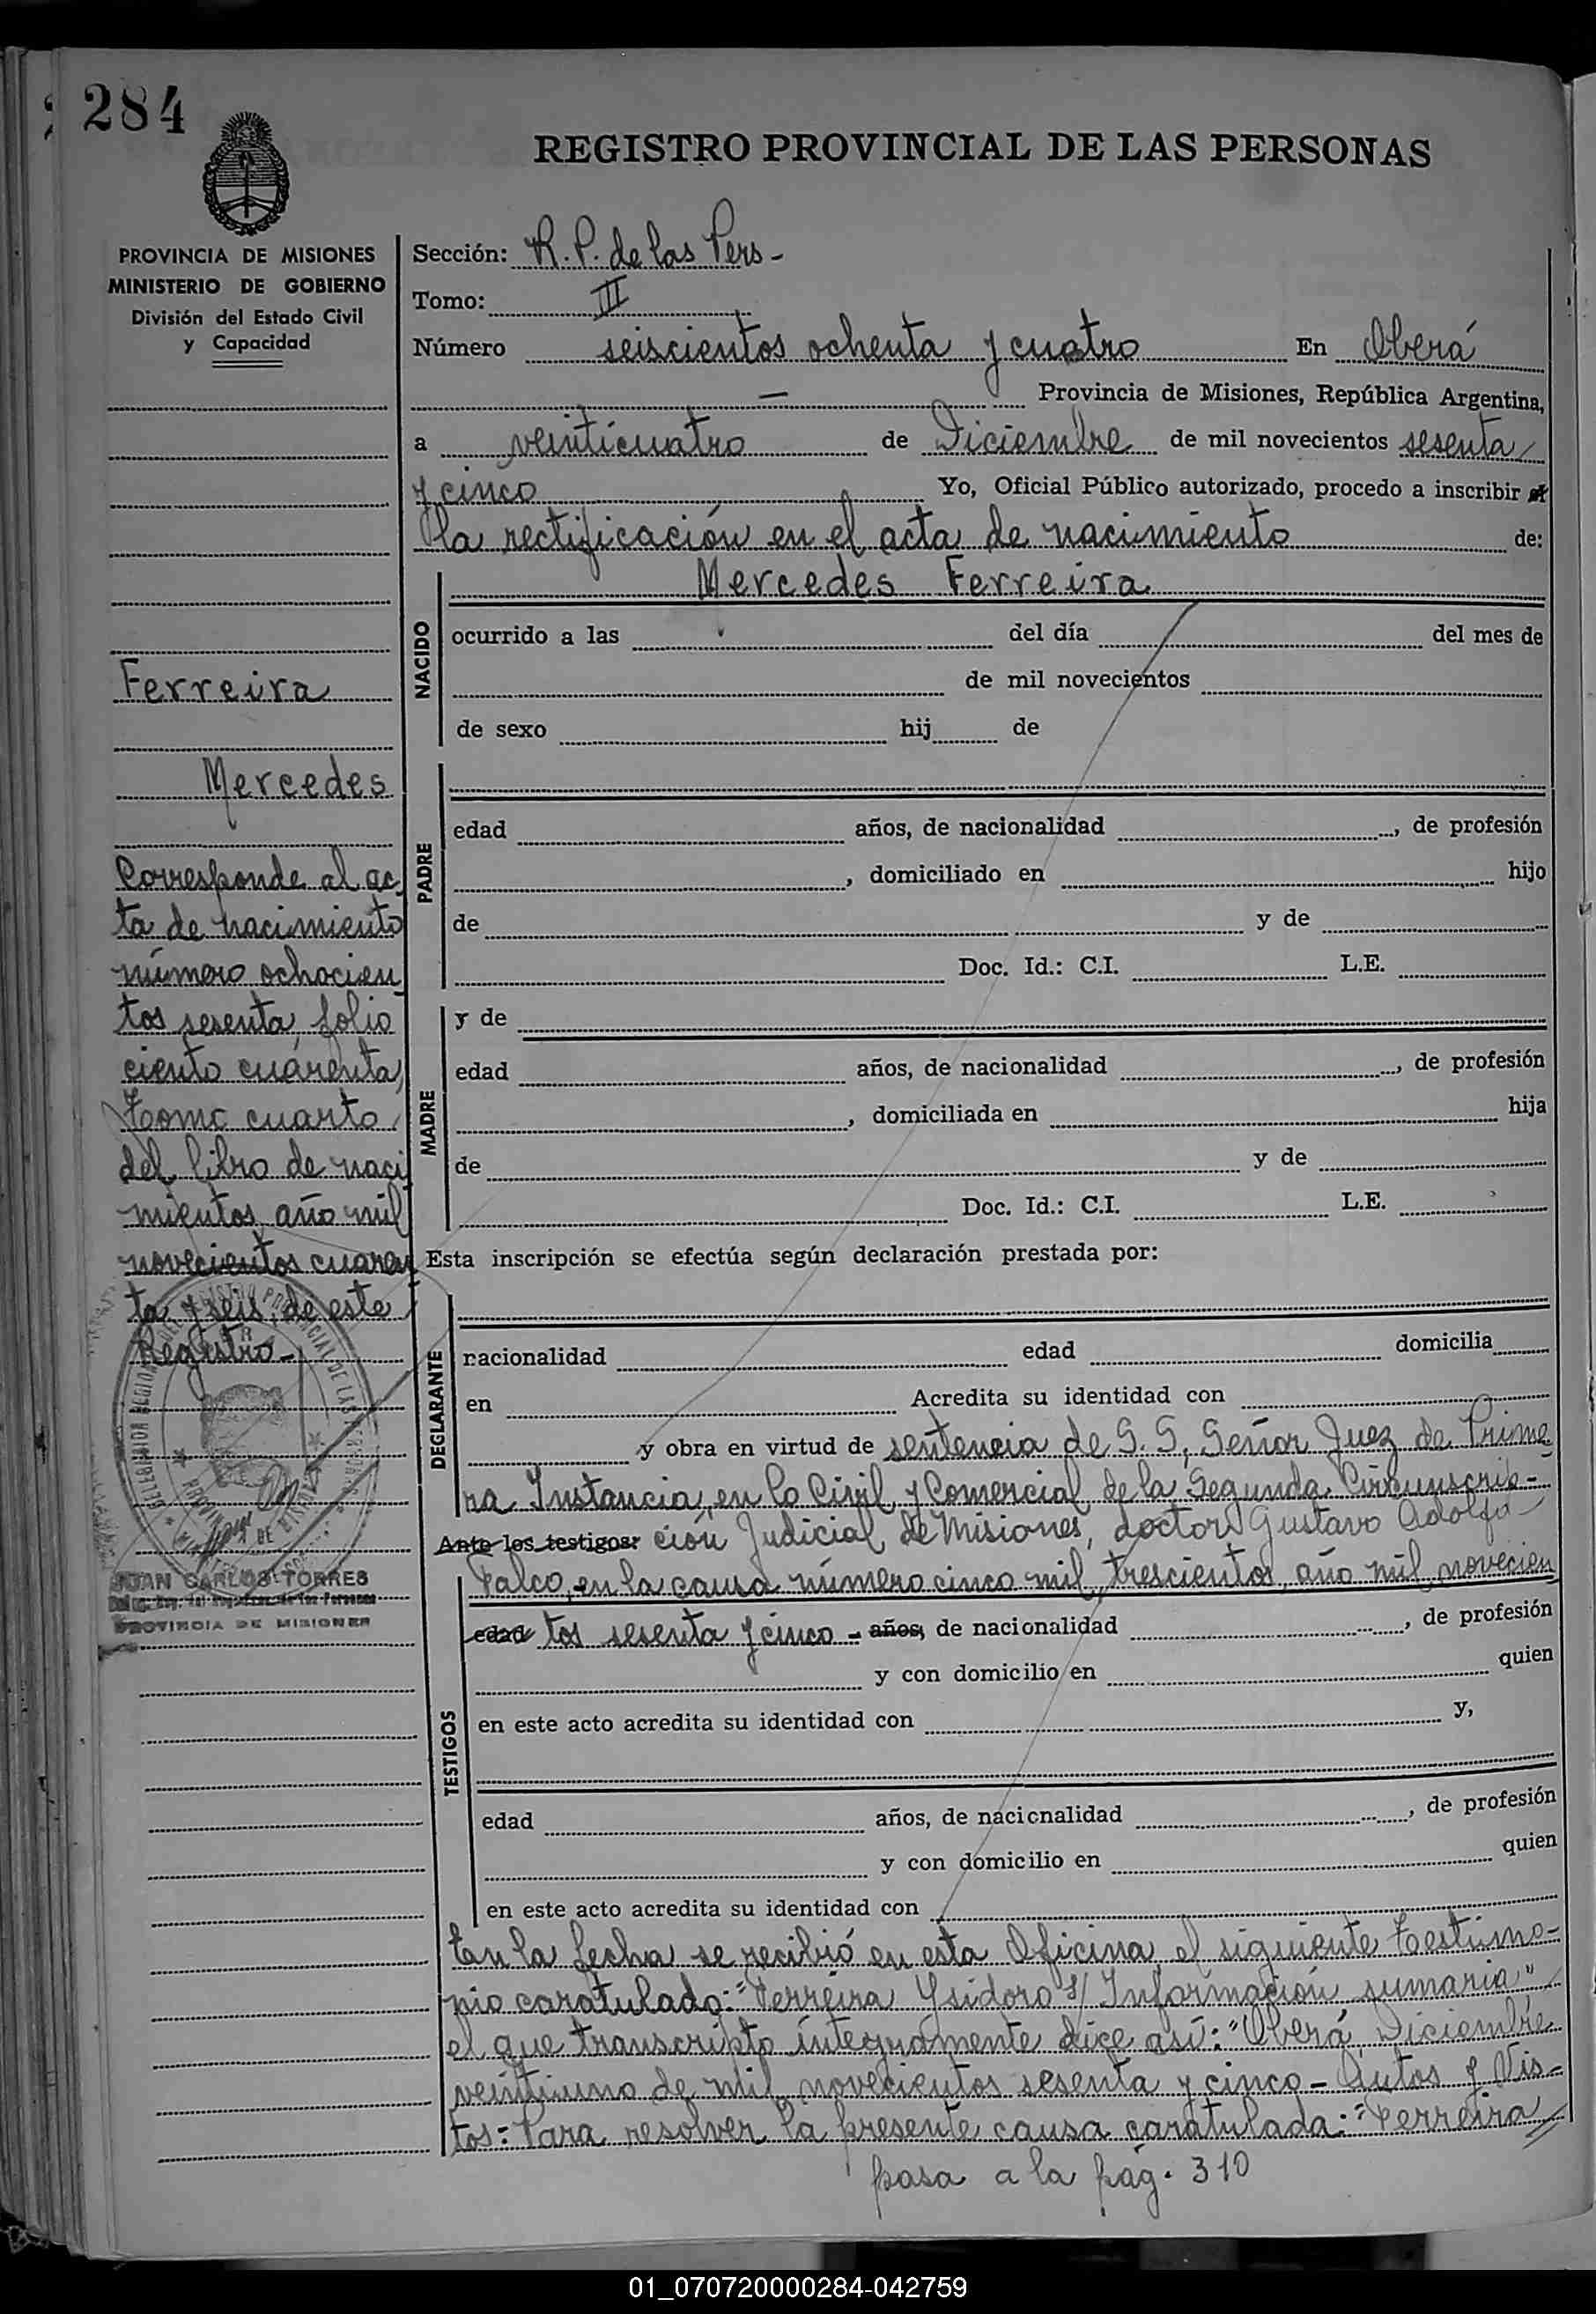 284
REGISTRO PROVINCIAL DE LAS PERSONAS
PROVINCIA DE MISIONES
MINISTERIO DE GOBIERNO
División del Estado Civil
y Capacidad
Ferreira
Mercedes
Corresponde al ac
ta de nacimiento
número ochocien
tos sesenta, folio
ciento cuarenta,
Tomo cuarto
del libro de naci
mientos, año mil
novecientos cuaren
ta y seis de este
Registro-
JUAN CARLOS TORRES
PROVINCIA DE MISIONES
Sección: R. P. de las Pers-
Tomo: III
Número seiscientos ochenta y cuatro En Oberá
— Provincia de Misiones, República Argentina,
a veinticuatro de Diciembre de mil novecientos sesenta
y cinco Yo, Oficial Público autorizado, procedo a inscribir el
la rectificación en el acta de nacimiento de:
Mercedes Ferreira
NACIDO
ocurrido a las del día del mes de
de mil novecientos
de sexo hij de
PADRE
edad años, de nacionalidad , de profesión
, domiciliado en hijo
de y de
Doc. Id.: C.I. L.E.
MADRE
y de
edad años, de nacionalidad , de profesión
, domiciliada en hija
de y de
Doc. Id.: C.I. L.E.
Esta inscripción se efectúa según declaración prestada por:
DEGLARANTE
nacionalidad edad domicilia
en Acredita su identidad con
y obra en virtud de sentencia de S. S, Señor Juez de Prime
ra Instancia, en lo Civil y Comercial de la Segunda Circunscrip-
Ante los testigos: ción Judicial de Misiones, doctor Gustavo Adolfo
Falco, en la causa número cinco mil, trescientos, año mil novecien
edad tos sesenta y cinco - años, de nacionalidad , de profesión
y con domicilio en quien
TESTIGOS
en este acto acredita su identidad con y,
edad años, de nacionalidad , de profesión
y con domicilio en quien
en este acto acredita su identidad con
En la fecha se recibió en esta Oficina, el siguiente Testimo-
nio caratulado: "Ferreira Ysidoro s/ Información sumaria"
el que transcripto íntegramente dice así: "Oberá, Diciembre
veintiuno de mil novecientos sesenta y cinco - Autos y Vis-
tos: Para resolver la presente causa caratulada: "Ferreira
pasa a la pág. 310
01_070720000284-042759